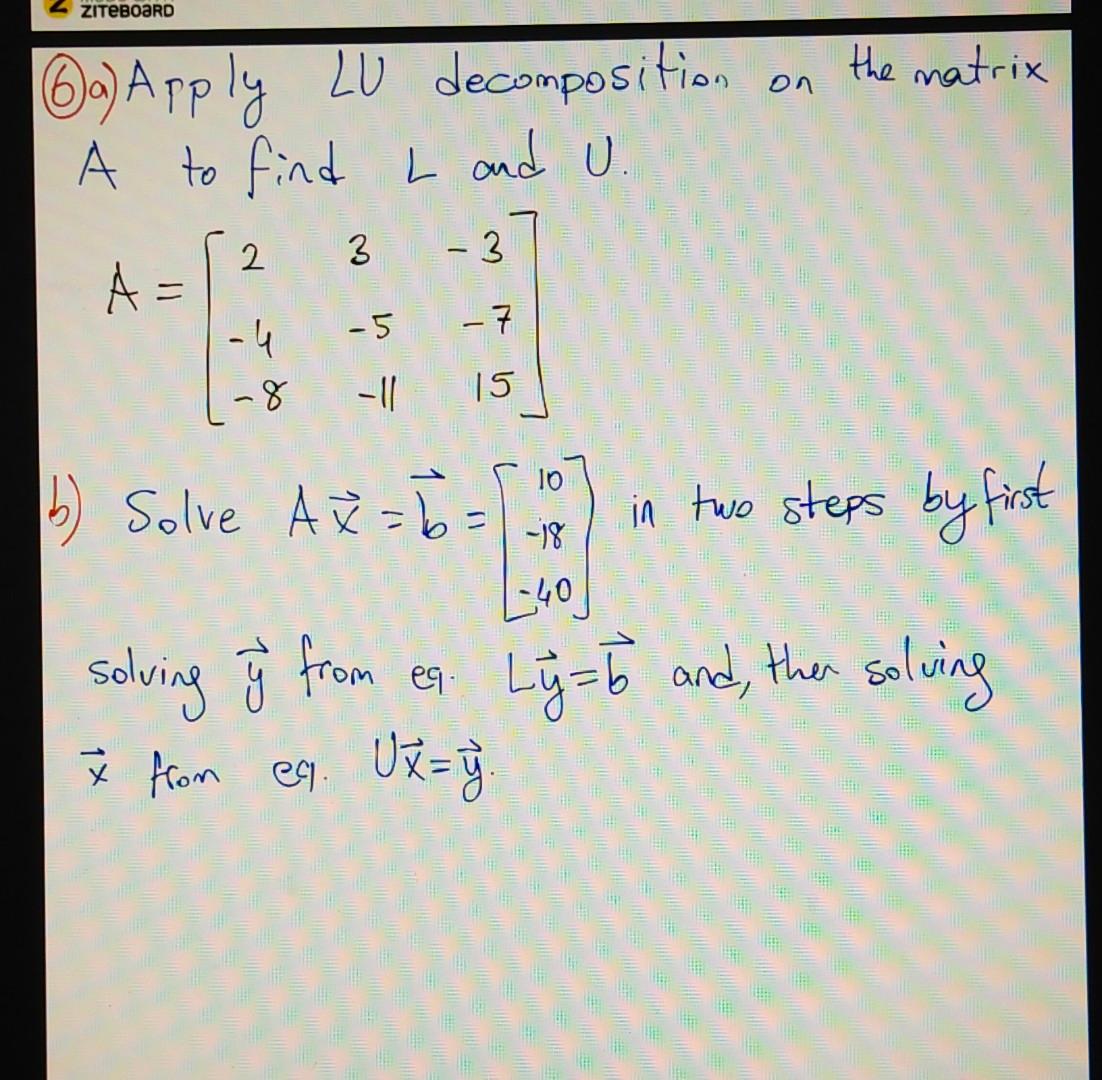 ZITEBOARD
6a) Apply LU decomposition on the matrix
A to find L and U.
A = [2 3 -3
-4 -5 -7
-8 -11 15]
b) Solve A x⃗ = b⃗ = [10 -18 -40] in two steps by first
solving y⃗ from eq. Ly⃗=b⃗ and, then solving
x⃗ from eq. Ux⃗=y⃗.